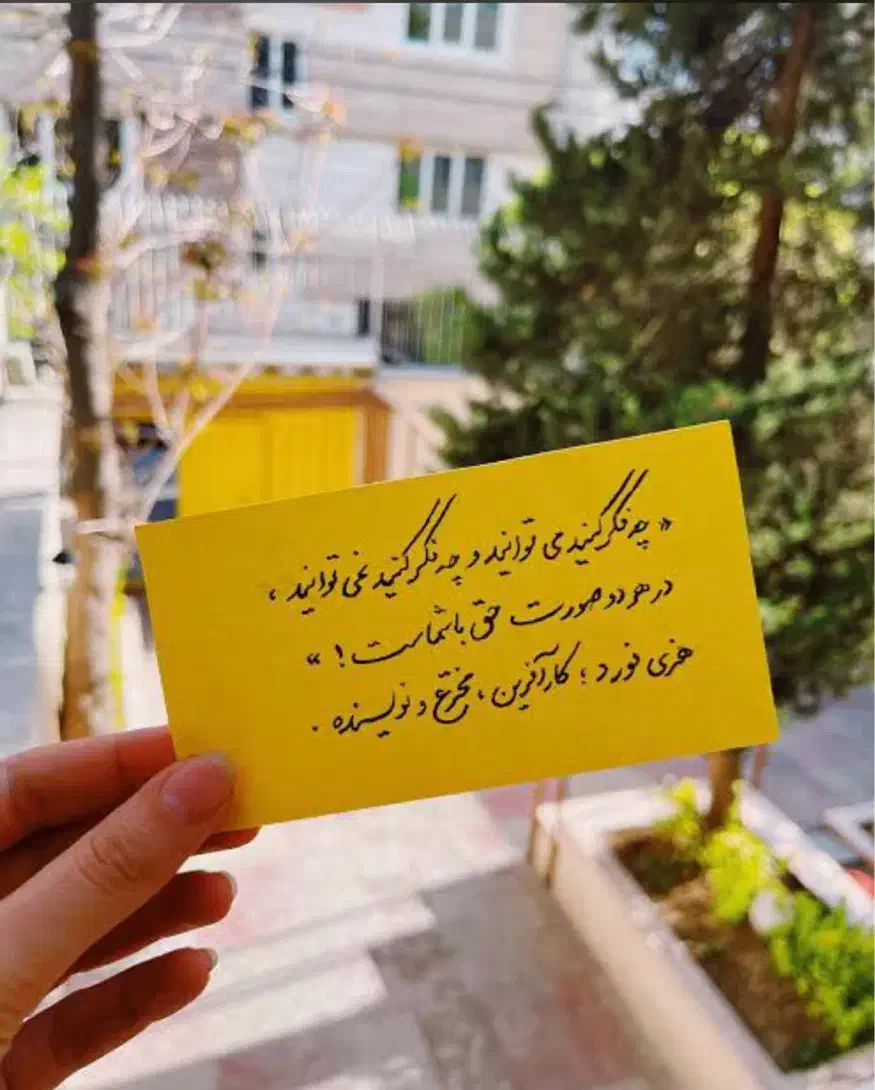 «چه فکر کنید می توانید و چه فکر کنید نمی توانید،
در هر دو صورت حق با شماست! »
هنری فورد؛ کارآفرین، مخترع و نویسنده.